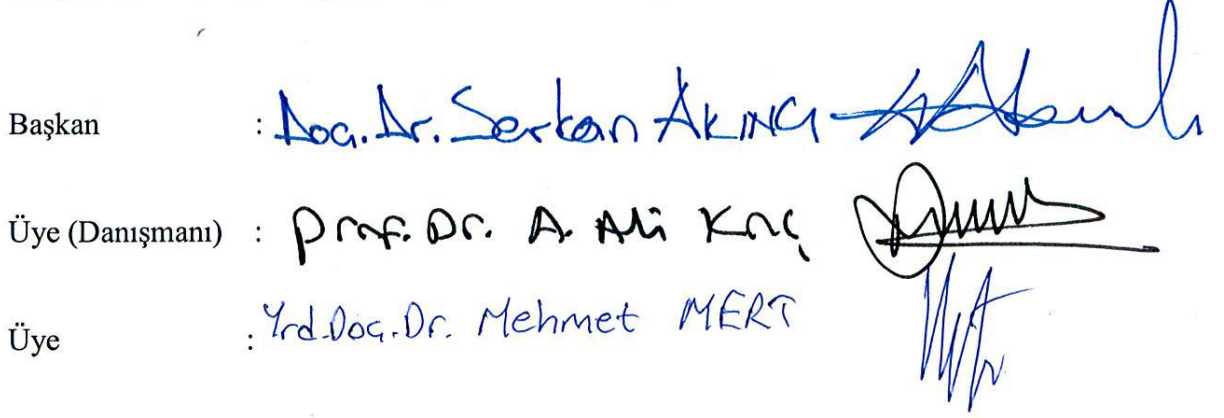 Başkan : Doç. Dr. Serkan AKINCI
Üye (Danışmanı) : Prof. Dr. A. Ali Koç
Üye : Yrd. Doç. Dr. Mehmet MERT